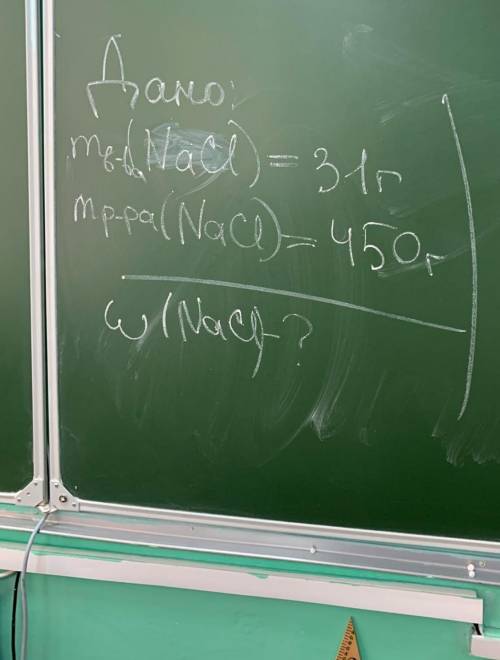 Дано:
mв-ва(NaCl) = 31г
mр-ра(NaCl) = 450г
ω(NaCl)-?